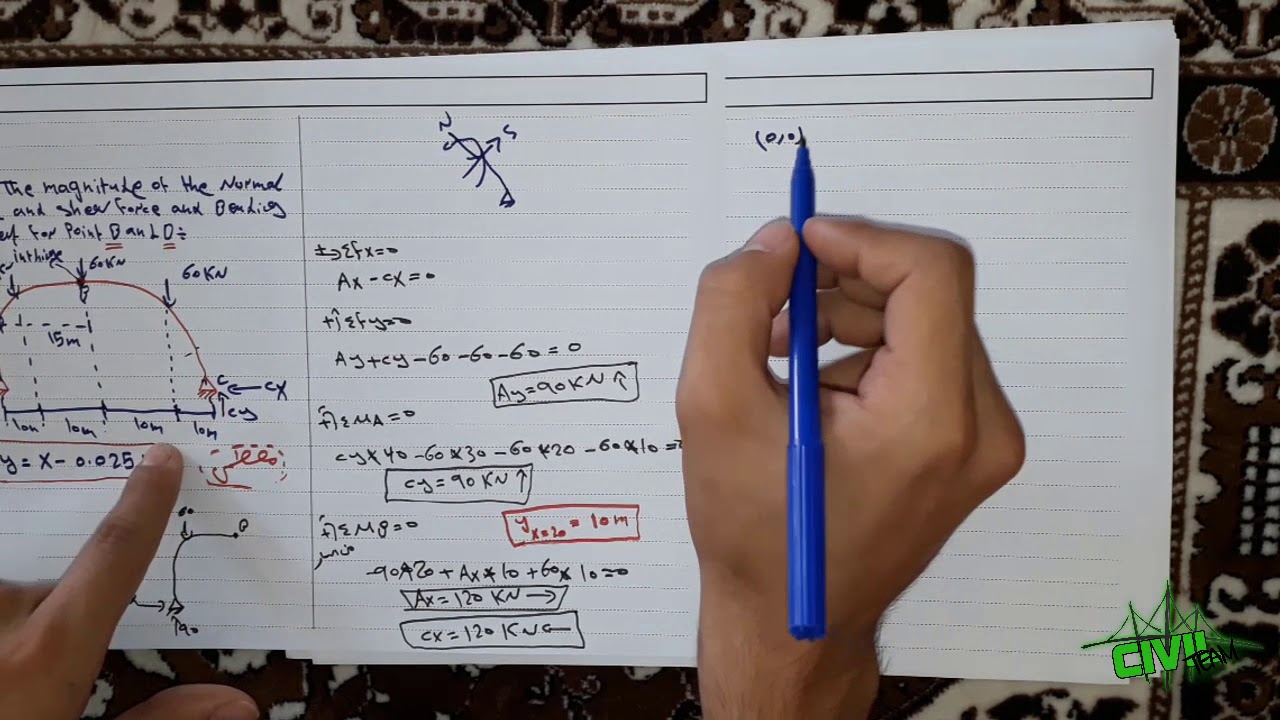 The magnitude of the Normal
and shear force and Bending
for Point B and D:
inthinge
60KN
60KN
15m
C
CX
Cy
10m
10m
10m
10m
y = X - 0.025
60
B
190
N
S
+→ΣFx=0
Ax - Cx = 0
+↑ΣFy=0
Ay + Cy - 60 - 60 - 60 = 0
Ay = 90 KN ↑
+) ΣMA = 0
Cy*40 - 60*30 - 60*20 - 60*10 =
Cy = 90 KN ↑
+) ΣMB = 0
y x=20 = 10m
-90*20 + Ax*10 + 60*10 = 0
Ax = 120 KN →
Cx = 120 KN ←
(0,0)
CIVIL
TEAM